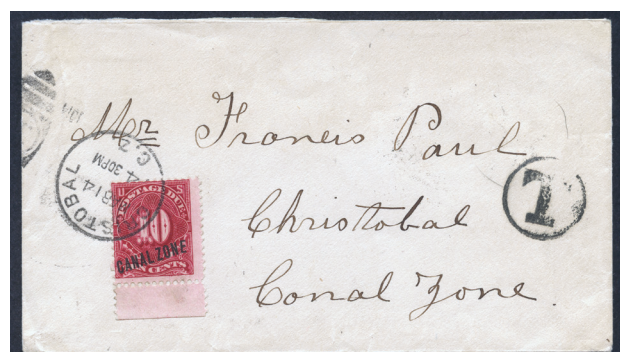 Mr Francis Paul
Christobal
Canal Zone.
T
STOBAL
C.Z.
4 30PM
1914
U S
POSTAGE DUE
10
CANAL ZONE
CENTS